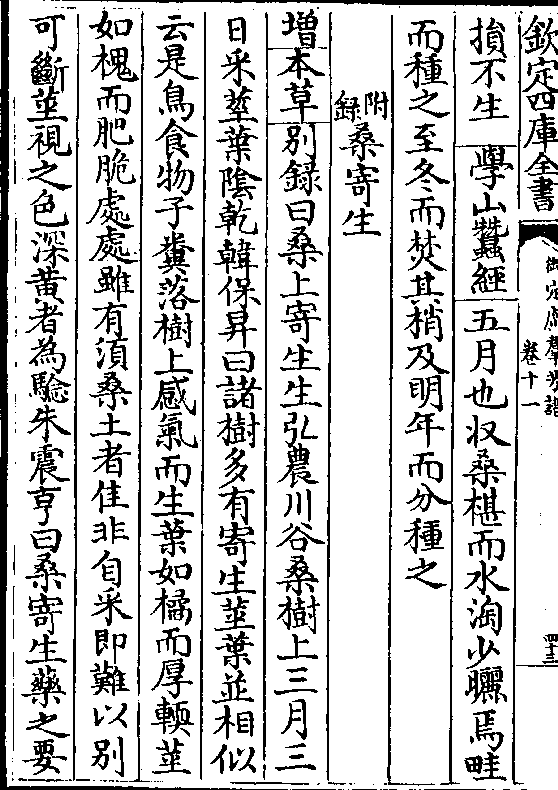 欽定四庫全書
御定廣羣芳譜
卷十一
四十三
損不生 學山蠶經 五月也収桑椹而水淘少曬焉畦
而種之至冬而焚其梢及明年而分種之
附錄桑寄生
增本草別錄曰桑上寄生生弘農川谷桑樹上三月三
日采莖葉陰乾韓保昇曰諸樹多有寄生莖葉並相似
云是鳥食物子糞落樹上感氣而生葉如橘而厚輭莖
如槐而肥脆處處雖有須桑上者佳非自采即難以別
可斷莖視之色深黃者為驗朱震亨曰桑寄生藥之要